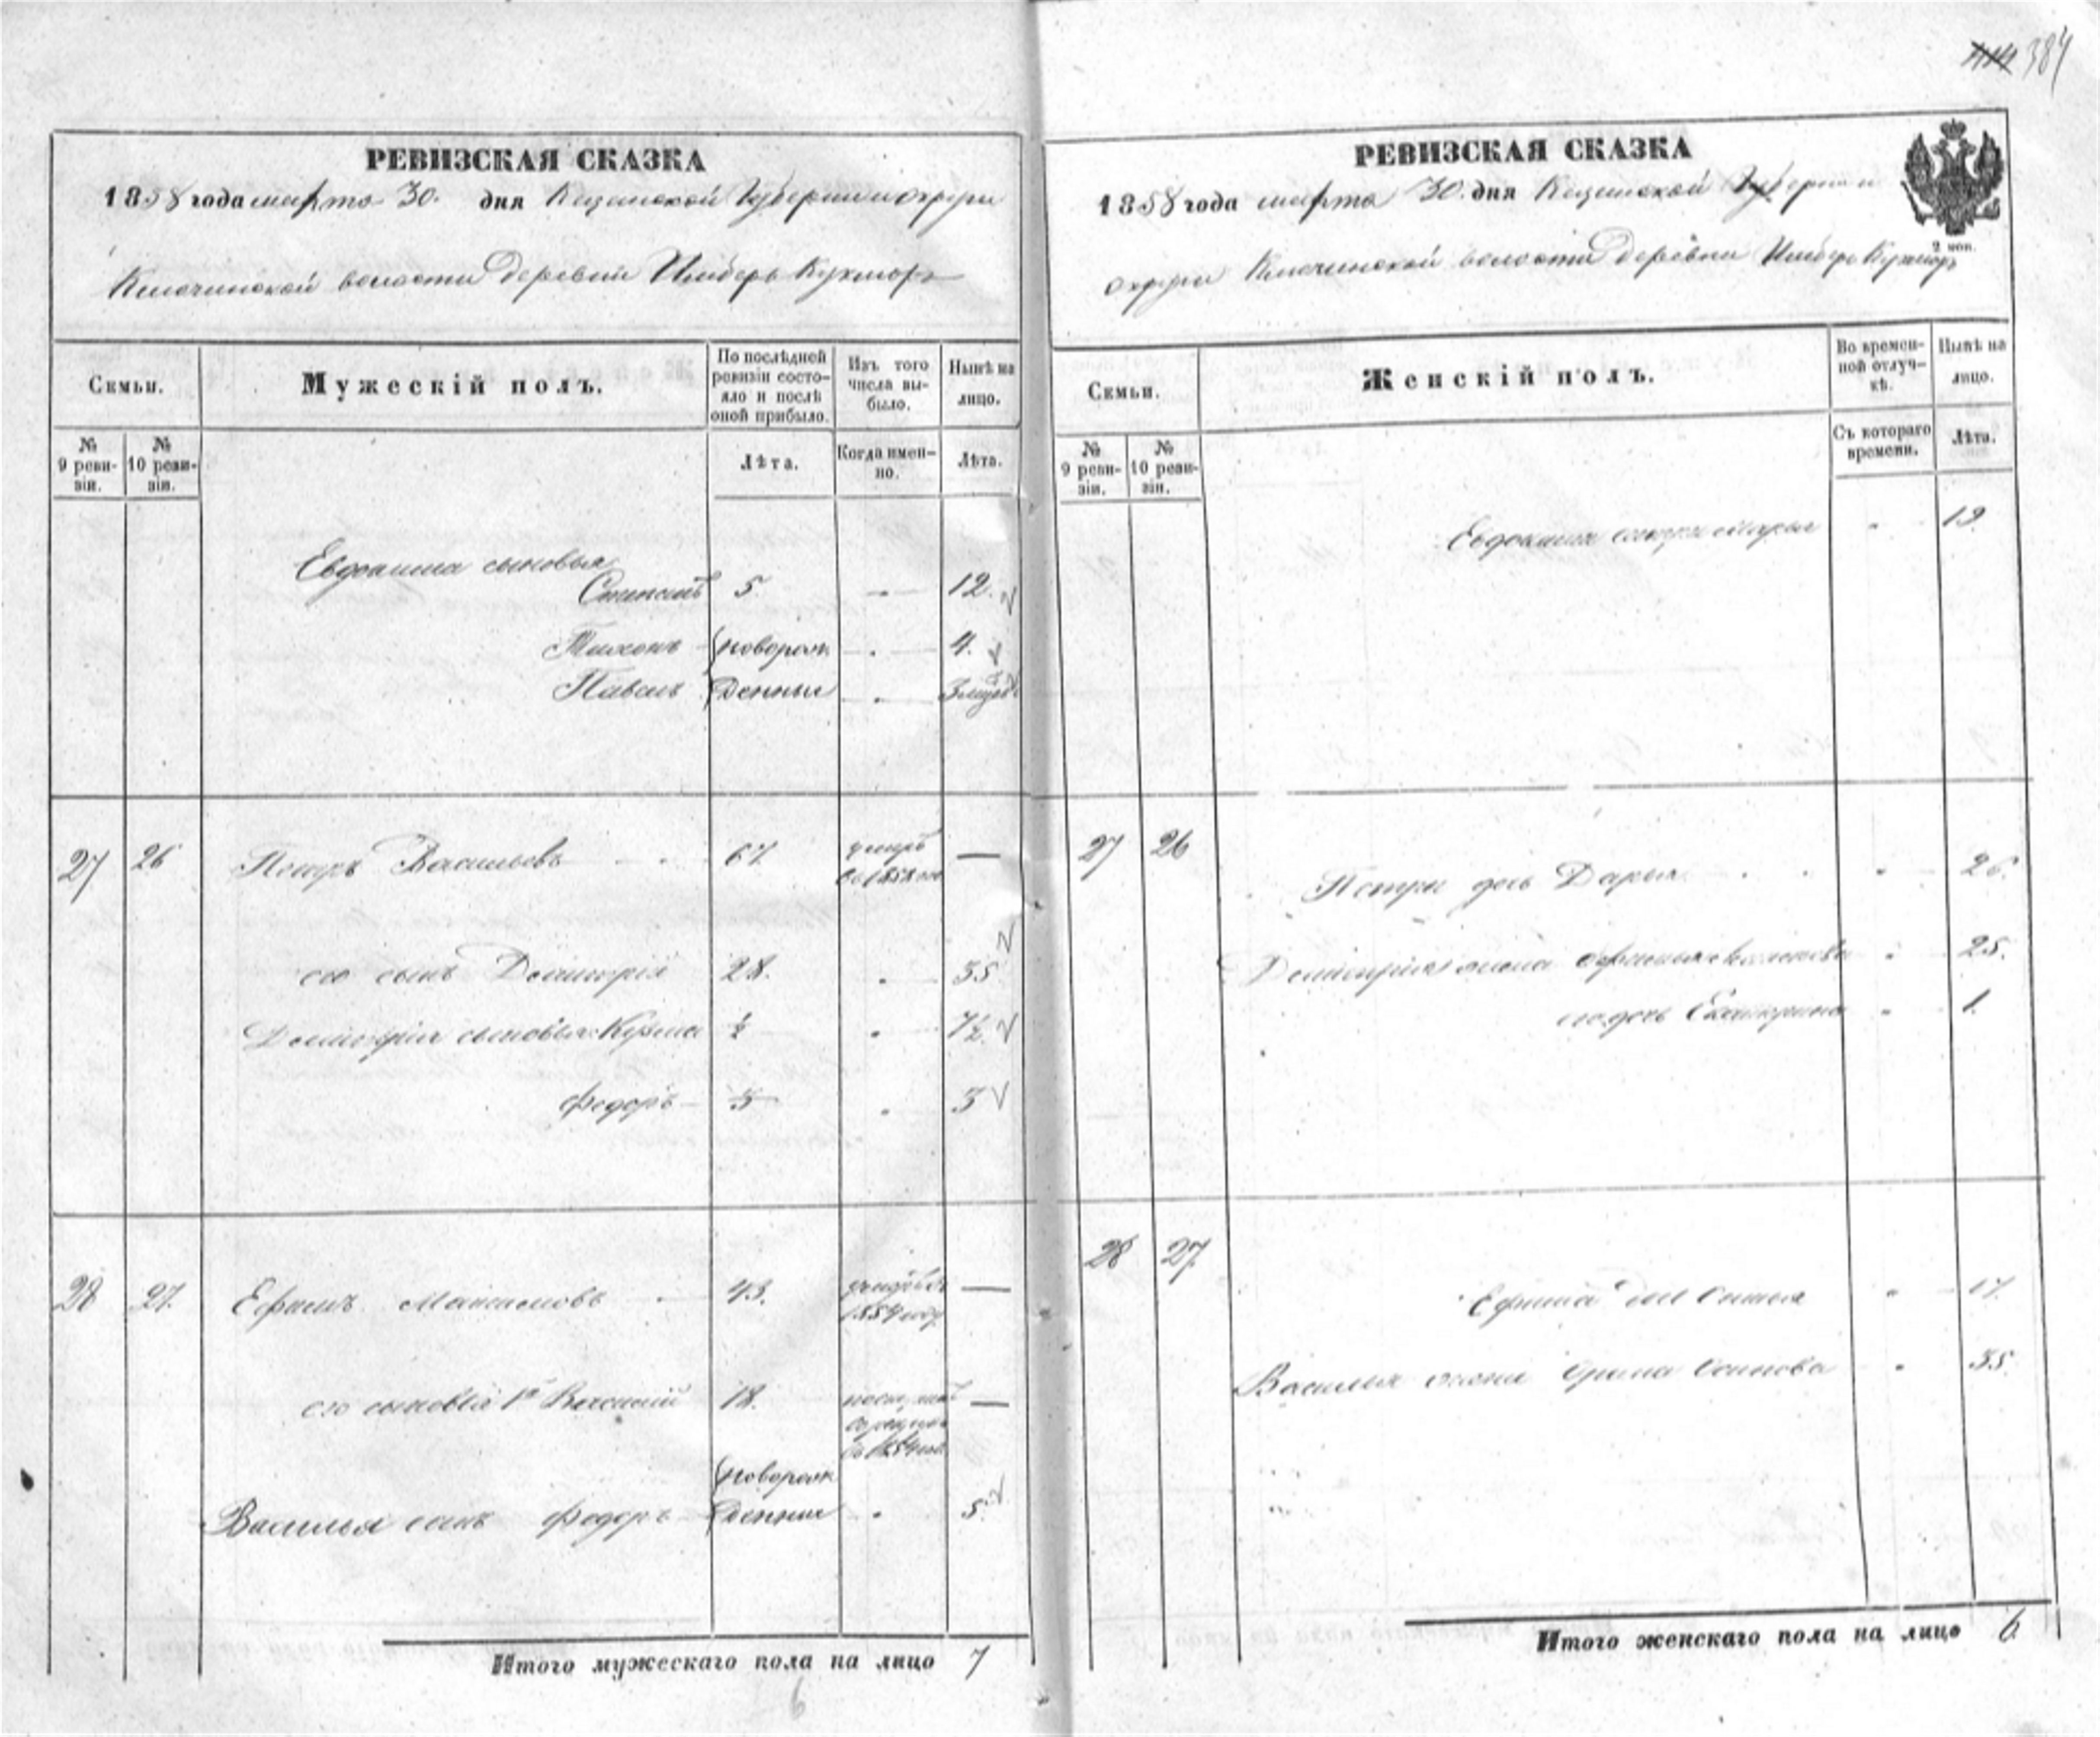 384
РЕВИЗСКАЯ СКАЗКА
1858 года марта 30. дня Казанской Губернии и округи
Ключинской волости деревни Имберь Кукморъ
Семьи.
Мужескій полъ.
По послѣдней ревизіи состояло и послѣ оной прибыло.
Изъ того числа выбыло.
Нынѣ на лицо.
№ 9 ревизіи.
№ 10 ревизіи.
Лѣта.
Когда именно.
Лѣта.
Евдокима сыновья
Степанъ 5 12.
Тихонъ новорож 4.
Павелъ денныи 3 мѣсяц
27 26 Петръ Васильевъ 67. умеръ
его сынъ Дмитрій 28. 35
Дмитрія сыновья Кузма ½ 7½
Федоръ 3
28 27. Ефимъ Максимовъ 43.
1854 году
его сыновья 1й Василій 18.
въ 1854
новорож
Василья сынъ Федоръ денныи 5.
Итого мужескаго пола на лицо 7
6
РЕВИЗСКАЯ СКАЗКА
1858 года марта 30. дня Казанской Губернии и
2 коп.
округи Ключинской волости деревни Имберь Кукморъ
Семьи.
Женскій полъ.
Во временной отлучкѣ.
Нынѣ на лицо.
№ 9 ревизіи.
№ 10 ревизіи.
Съ котораго времени.
Лѣта.
Евдокима сестра Марья 19.
27 26
Петра дочь Дарья 26.
Дмитрія жена 25.
его дочь Екатерина 1.
28 27.
Ефима 17.
Василья жена Ирина Осипова 35.
Итого женскаго пола на лицо 6.